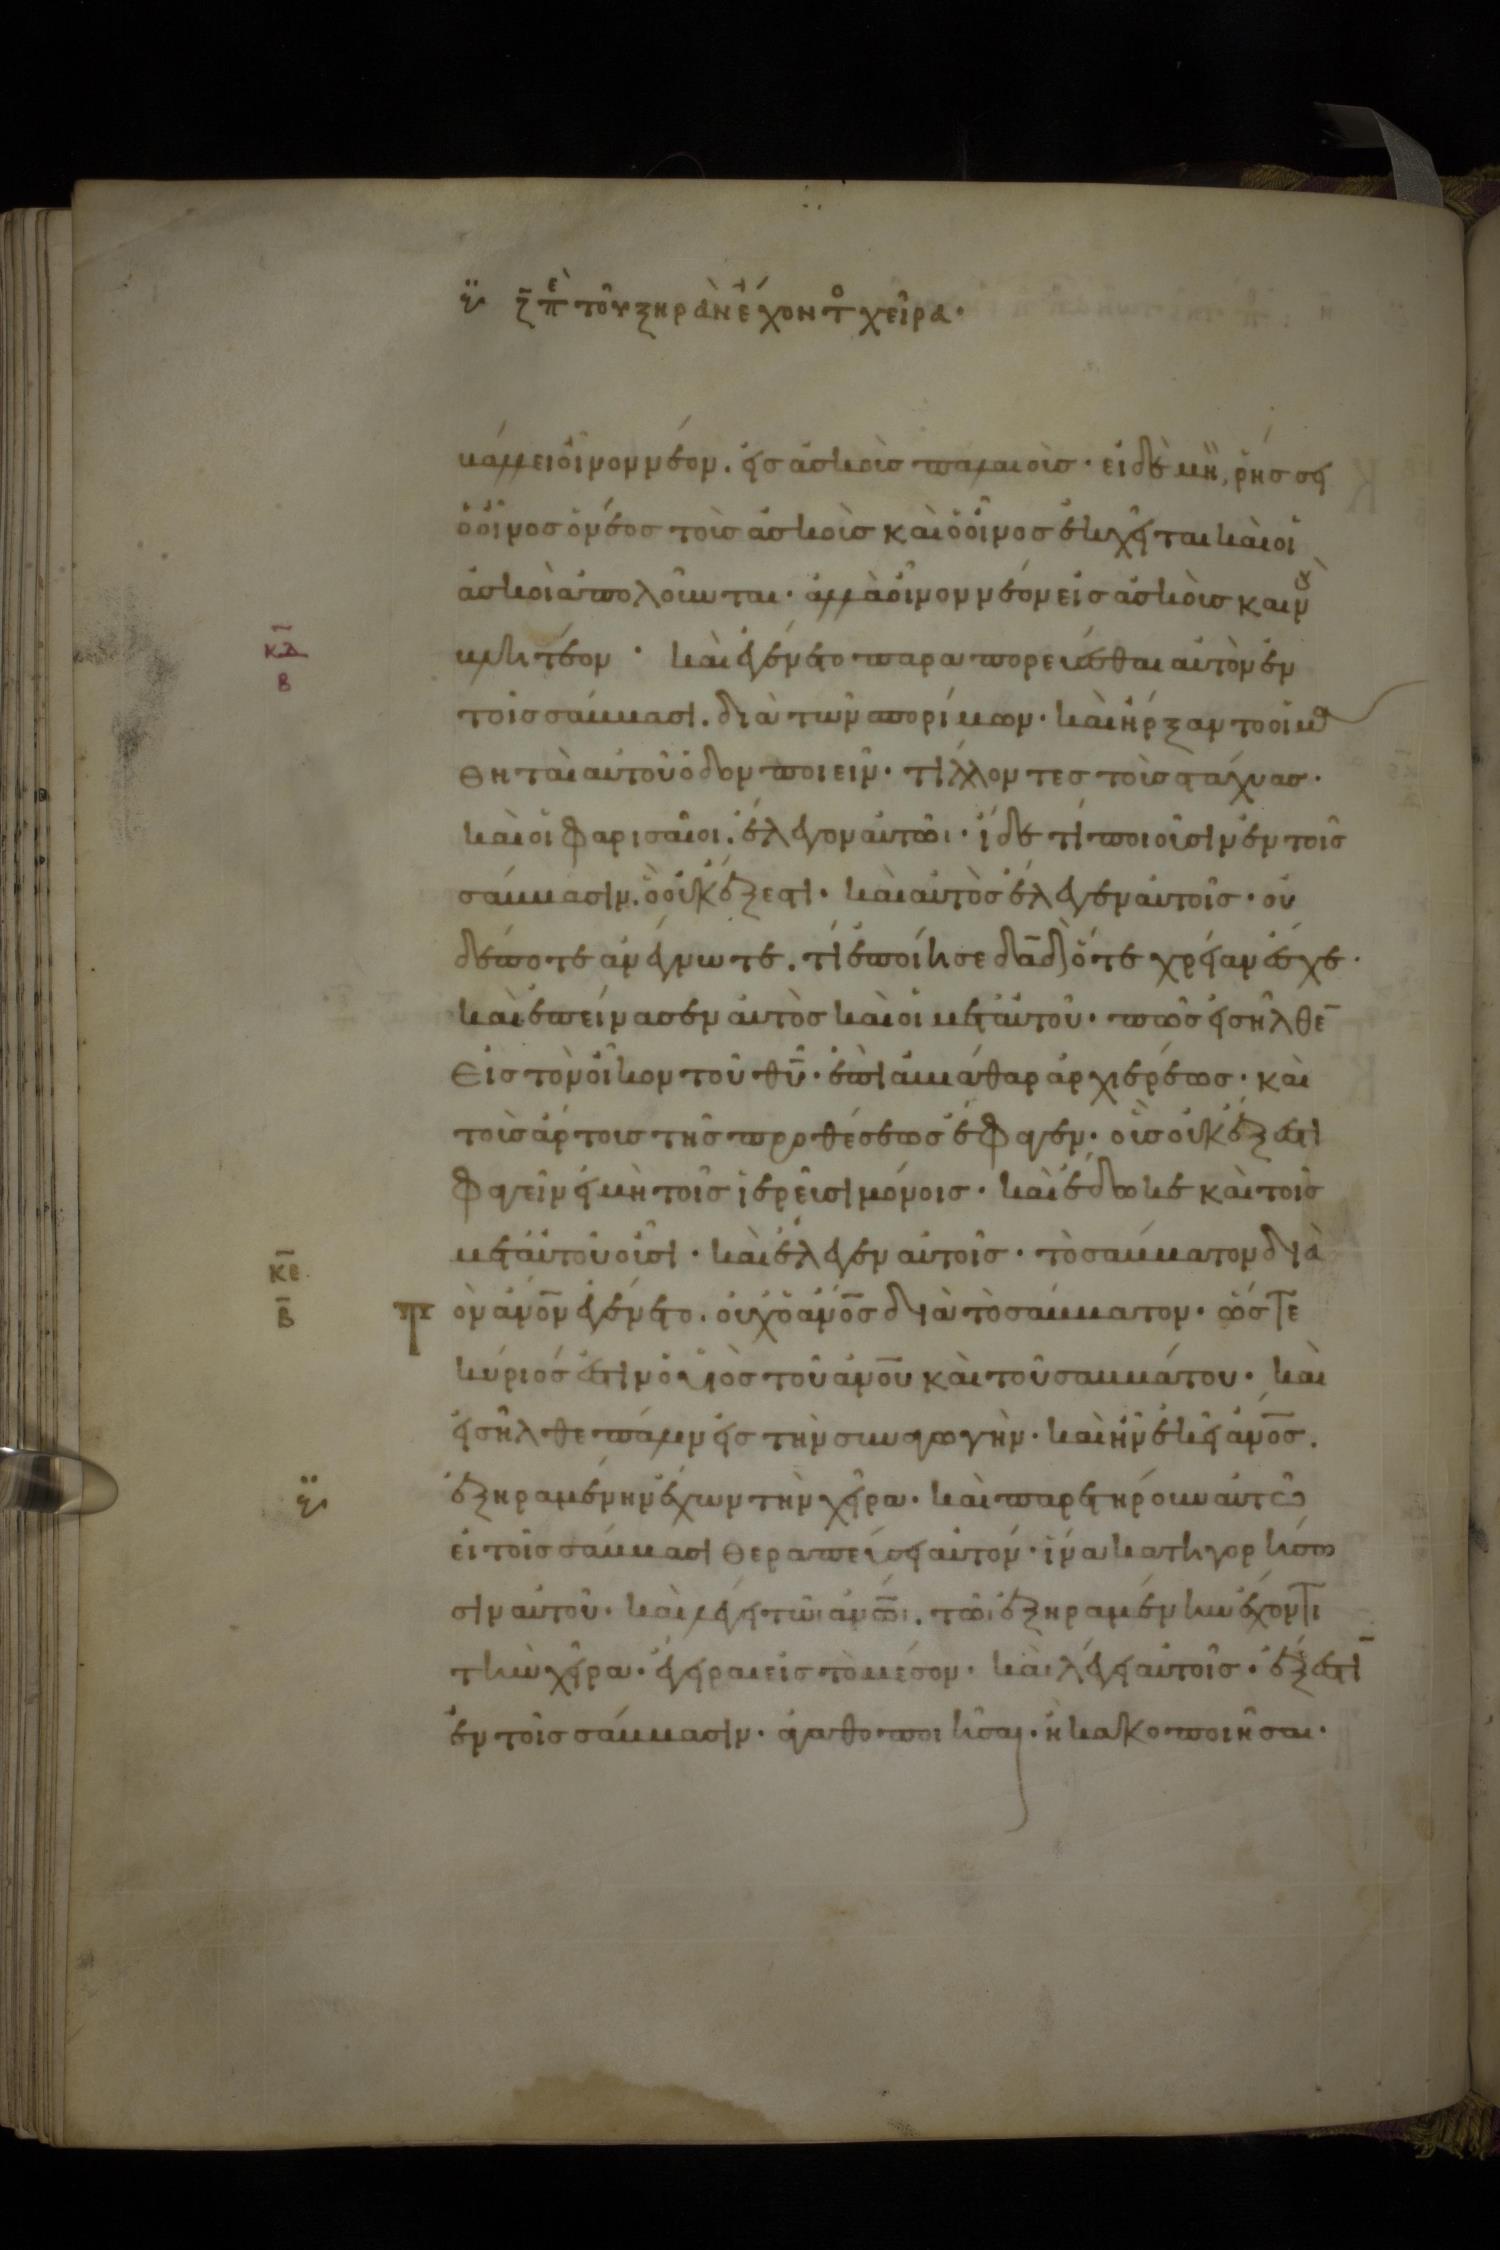 ζ̅ πὲ τοῦ ξηρὰν ἔχοντο χεῖρα·
βάλλει οἶνον νέον. εἰς ἀσκοὺς παλαιούς· εἰ δὲ μὴ, ῥήσσει
ὁ οἶνος ὁ νέος τοὺς ἀσκοὺς καὶ ὁ οἶνος ἐκχεῖται καὶ οἱ
ἀσκοὶ ἀπολοῦνται· ἀλλὰ οἶνον νέον εἰς ἀσκοὺς καινοὺ
βλητέον· καὶ ἐγένετο παραπορεύεσθαι αὐτὸν ἐν
κδ̅
β
τοῖς σάββασι. διὰ τῶν σπορίμων· καὶ ἤρξαντο οἱ μα
θηταὶ αὐτοῦ ὁδὸν ποιεῖν· τίλλοντες τοὺς στάχυας·
καὶ οἱ φαρισαῖοι. ἔλεγον αὐτῶι· ἴδε τί ποιοῦσιν ἐν τοῖς
σάββασιν. ὃ οὐκ ἔξεστι· καὶ αὐτὸς ἔλεγεν αὐτοῖς· οὐ
δέποτε ἀνέγνωτε. τί ἐποίησε δα̅δ ὅτε χρείαν ἔσχε·
καὶ ἐπείνασεν αὐτὸς καὶ οἱ μετ' αὐτοῦ· πῶς εἰσῆλθε̅
εἰς τὸν οἶκον τοῦ θυ̅· ἐπὶ ἀβιάθαρ ἀρχιερέως· καὶ
τοὺς ἄρτους τῆς προθέσεως ἔφαγεν· οὓς οὐκ ἔξεστι
φαγεῖν εἰ μὴ τοῖς ἱερεῦσι μόνοις· καὶ ἔδωκε καὶ τοῖς
μετ' αὐτοῦ οὖσι· καὶ ἔλεγεν αὐτοῖς· τὸ σάββατον διὰ
κε̅
β̅
τὸν ἀνο̅ν ἐγένετο. οὐχ ὁ ἀνο̅ς διὰ τὸ σάββατον· ὥστε
κύριός ἐστιν ὁ υἱὸς τοῦ ἀνο̅υ καὶ τοῦ σαββάτου· καὶ
εἰσῆλθε πάλιν εἰς τὴν συναγωγὴν· καὶ ἦν ἐκεῖ ἀνο̅ς.
ἐξηραμένην ἔχων τὴν χεῖρα· καὶ παρετήρουν αὐτὸ
εἰ τοῖς σάββασι θεραπεύσει αὐτόν· ἵνα κατηγορήσω
σιν αὐτοῦ· καὶ λέγει τῶι ἀνω̅ι. τῶι ἐξηραμένην ἔχοντι
τὴν χεῖρα· ἔγειραι εἰς τὸ μέσον· καὶ λέγει αὐτοῖς· ἔξεστι̅
ἐν τοῖς σάββασιν· ἀγαθοποιῆσαι· ἢ κακοποιῆσαι·